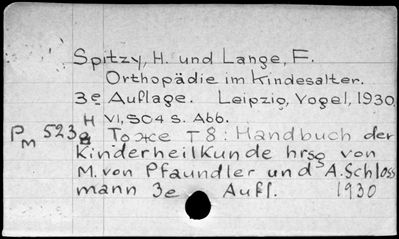 Spitzy, H. und Lange, F.
Orthopädie im Kindesalter.
3e Auflage. Leipzig, Vogel, 1930.
H VI, 504 s. Abb.
Pm 523a Тоже T 8: Handbuch der
Kinderheilkunde hrsg von
M. von Pfaundler und A. Schloss
mann 3e Aufl. 1930